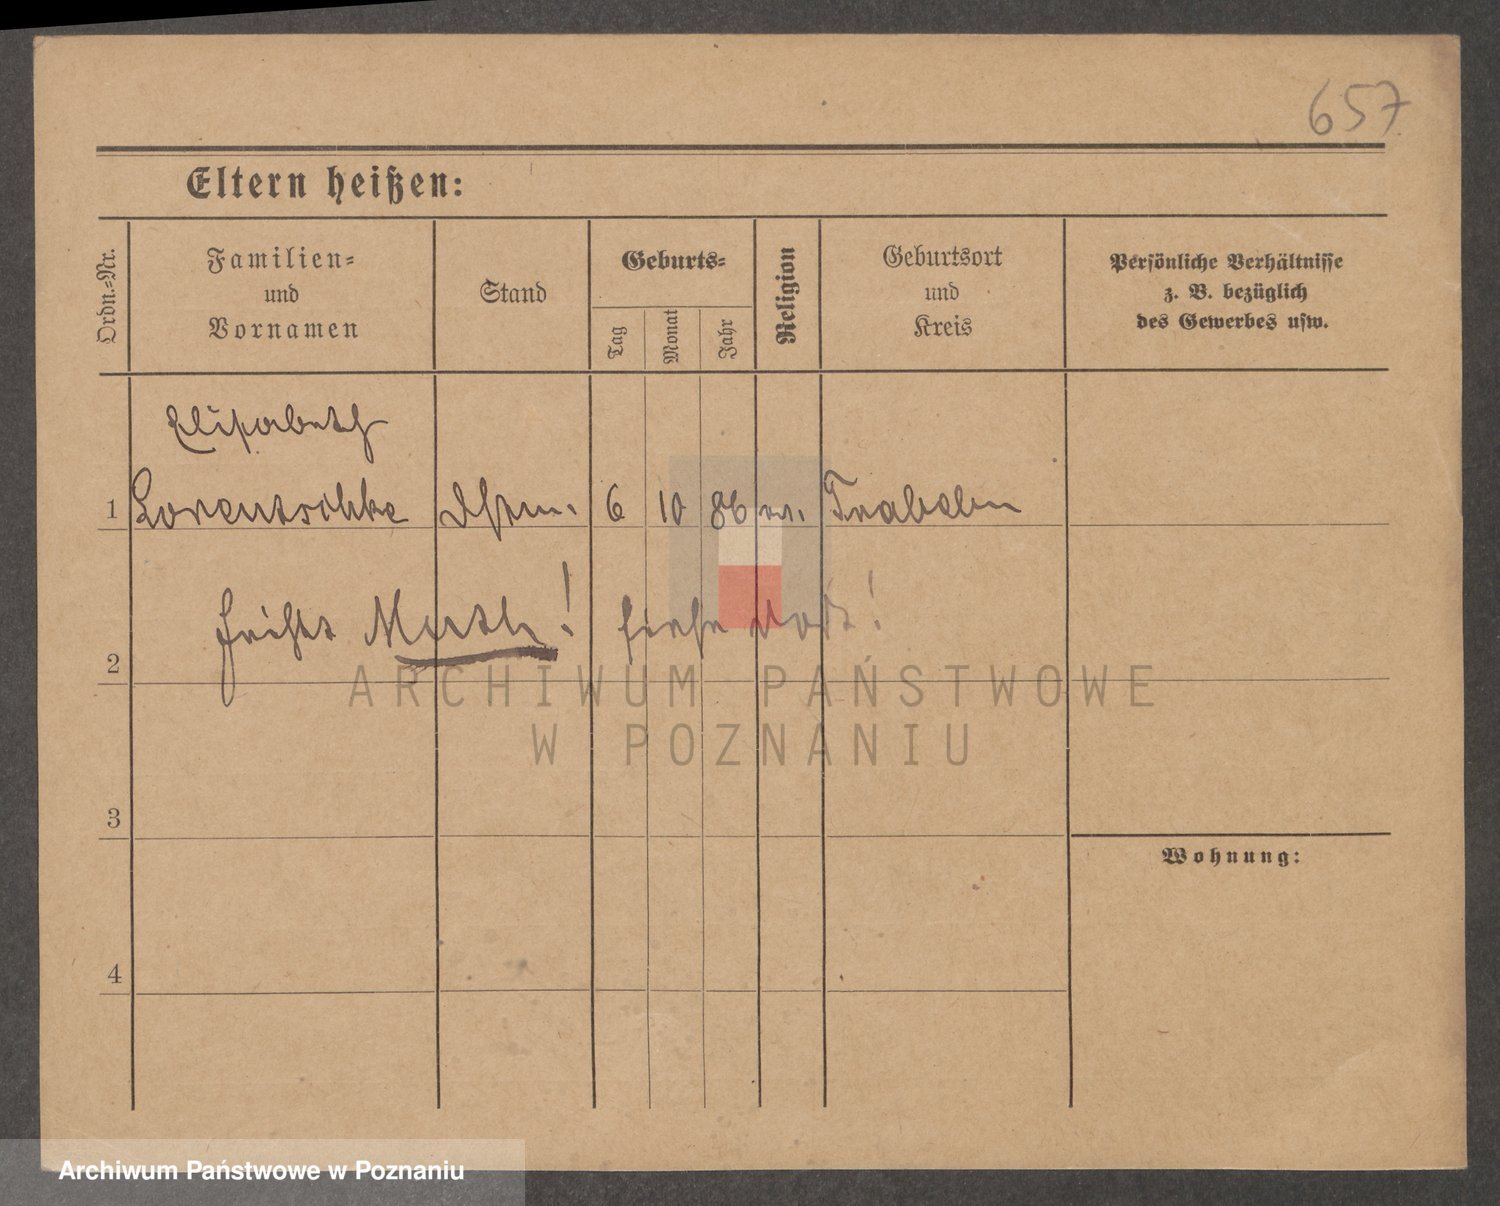 657
Eltern heißen:
Ordn.-Nr.
Familien-
und
Vornamen
Stand
Geburts-
Tag
Monat
Jahr
Religion
Geburtsort
und
Kreis
Persönliche Verhältnisse
z. B. bezüglich
des Gewerbes usw.
Elisabeth
1 Lorentschke 6 10 86 ev.
heißt ! siehe dort!
2
ARCHIWUM PAŃSTWOWE
W POZNANIU
3
Wohnung:
4
Archiwum Państwowe w Poznaniu